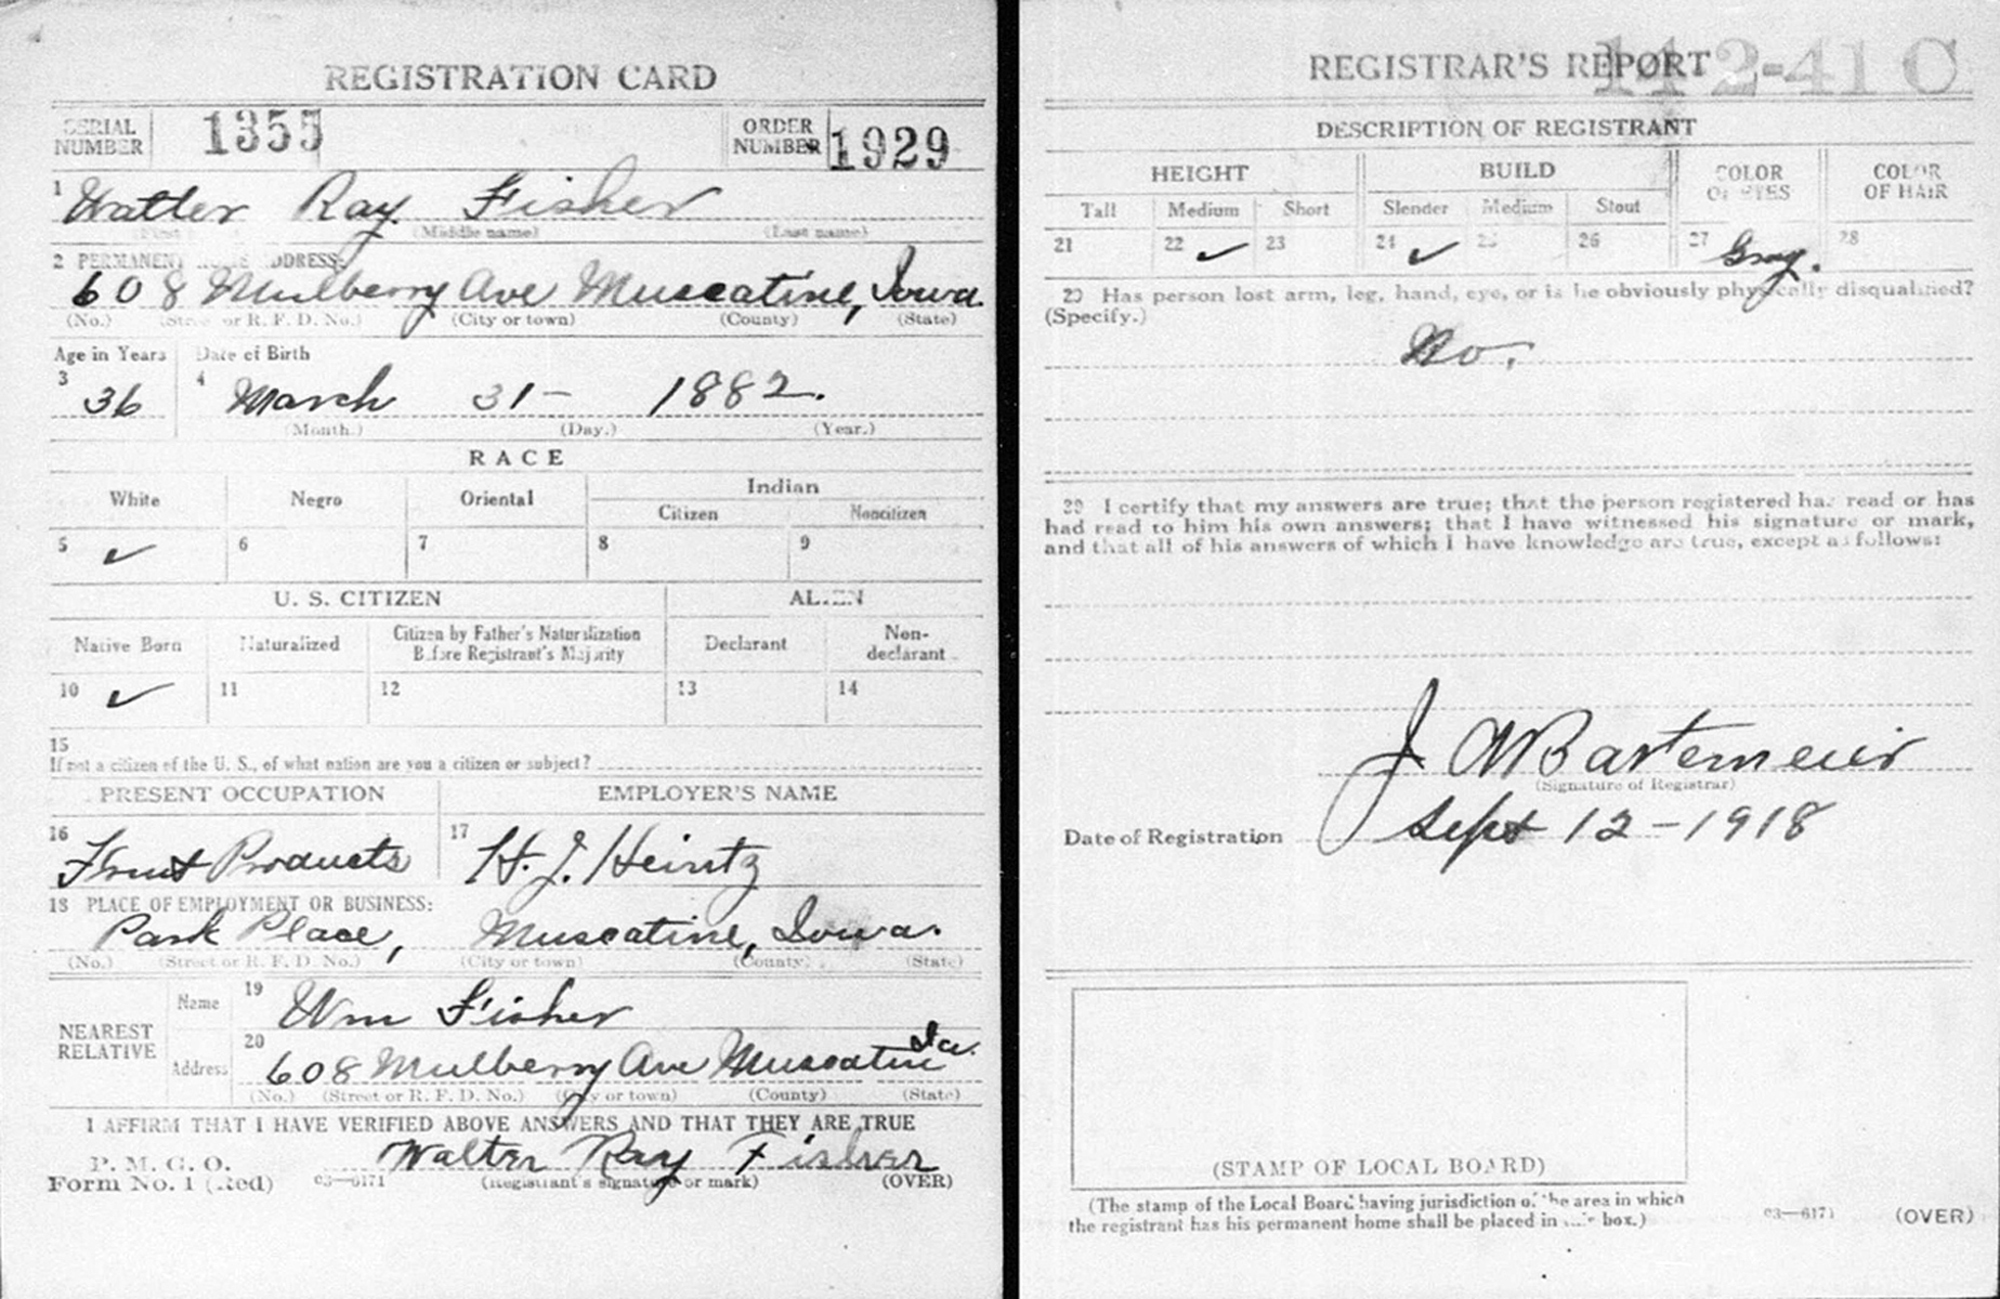 REGISTRATION CARD
SERIAL NUMBER 1355 ORDER NUMBER 1929
1 Walter Ray Fisher
(Middle name) (Last name)
2 PERMANENT HOME ADDRESS:
608 Mulberry Ave Muscatine, Iowa
(No.) (Street or R. F. D. No.) (City or town) (County) (State)
Age in Years Date of Birth
3 36 4 March 31- 1882.
(Month.) (Day.) (Year.)
RACE
White Negro Oriental Indian
Citizen Noncitizen
5 ✓ 6 7 8 9
U. S. CITIZEN ALIEN
Native Born Naturalized Citizen by Father's Naturalization Before Registrant's Majority Declarant Non-declarant
10 ✓ 11 12 13 14
15
If not a citizen of the U. S., of what nation are you a citizen or subject?
PRESENT OCCUPATION EMPLOYER'S NAME
16 Fruit Products 17 H. J. Heintz
18 PLACE OF EMPLOYMENT OR BUSINESS:
Park Place, Muscatine, Iowa.
(No.) (Street or R. F. D. No.) (City or town) (County) (State)
NEAREST RELATIVE
Name 19 Wm Fisher
Address 20 608 Mulberry Ave Muscatine Ia.
(No.) (Street or R. F. D. No.) (City or town) (County) (State)
I AFFIRM THAT I HAVE VERIFIED ABOVE ANSWERS AND THAT THEY ARE TRUE
P. M. G. O.
Form No. 1 (Red) 03—6171 Walter Ray Fisher
(Registrant's signature or mark) (OVER)
REGISTRAR'S REPORT 14 2-41 C
DESCRIPTION OF REGISTRANT
HEIGHT BUILD COLOR OF EYES COLOR OF HAIR
Tall Medium Short Slender Medium Stout
21 22 ✓ 23 24 ✓ 25 26 27 Gray. 28
29 Has person lost arm, leg, hand, eye, or is he obviously physically disqualified?
(Specify.)
No.
30 I certify that my answers are true; that the person registered has read or has
had read to him his own answers; that I have witnessed his signature or mark,
and that all of his answers of which I have knowledge are true, except as follows:
J W Bartemeier
(Signature of Registrar)
Date of Registration Sept 12-1918
(STAMP OF LOCAL BOARD)
(The stamp of the Local Board having jurisdiction of the area in which
the registrant has his permanent home shall be placed in this box.)
03—6171 (OVER)